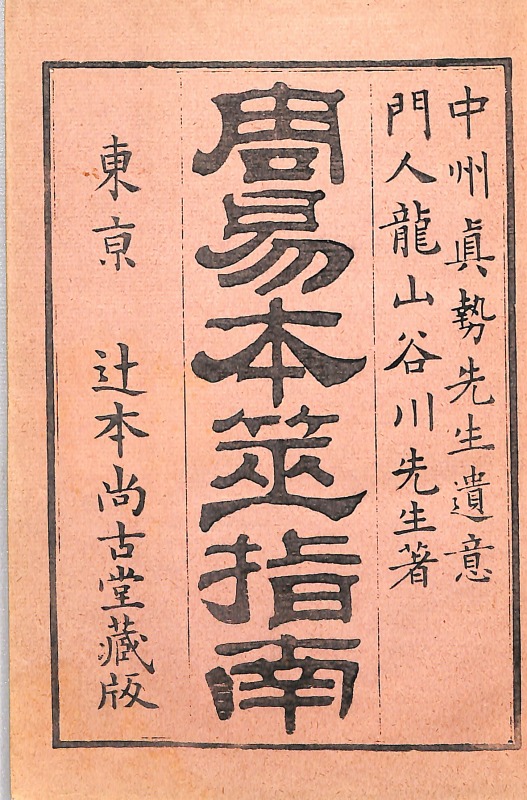 中州眞勢先生遺意
門人龍山谷川先生著
周易本筮指南
東京 辻本尚古堂藏版